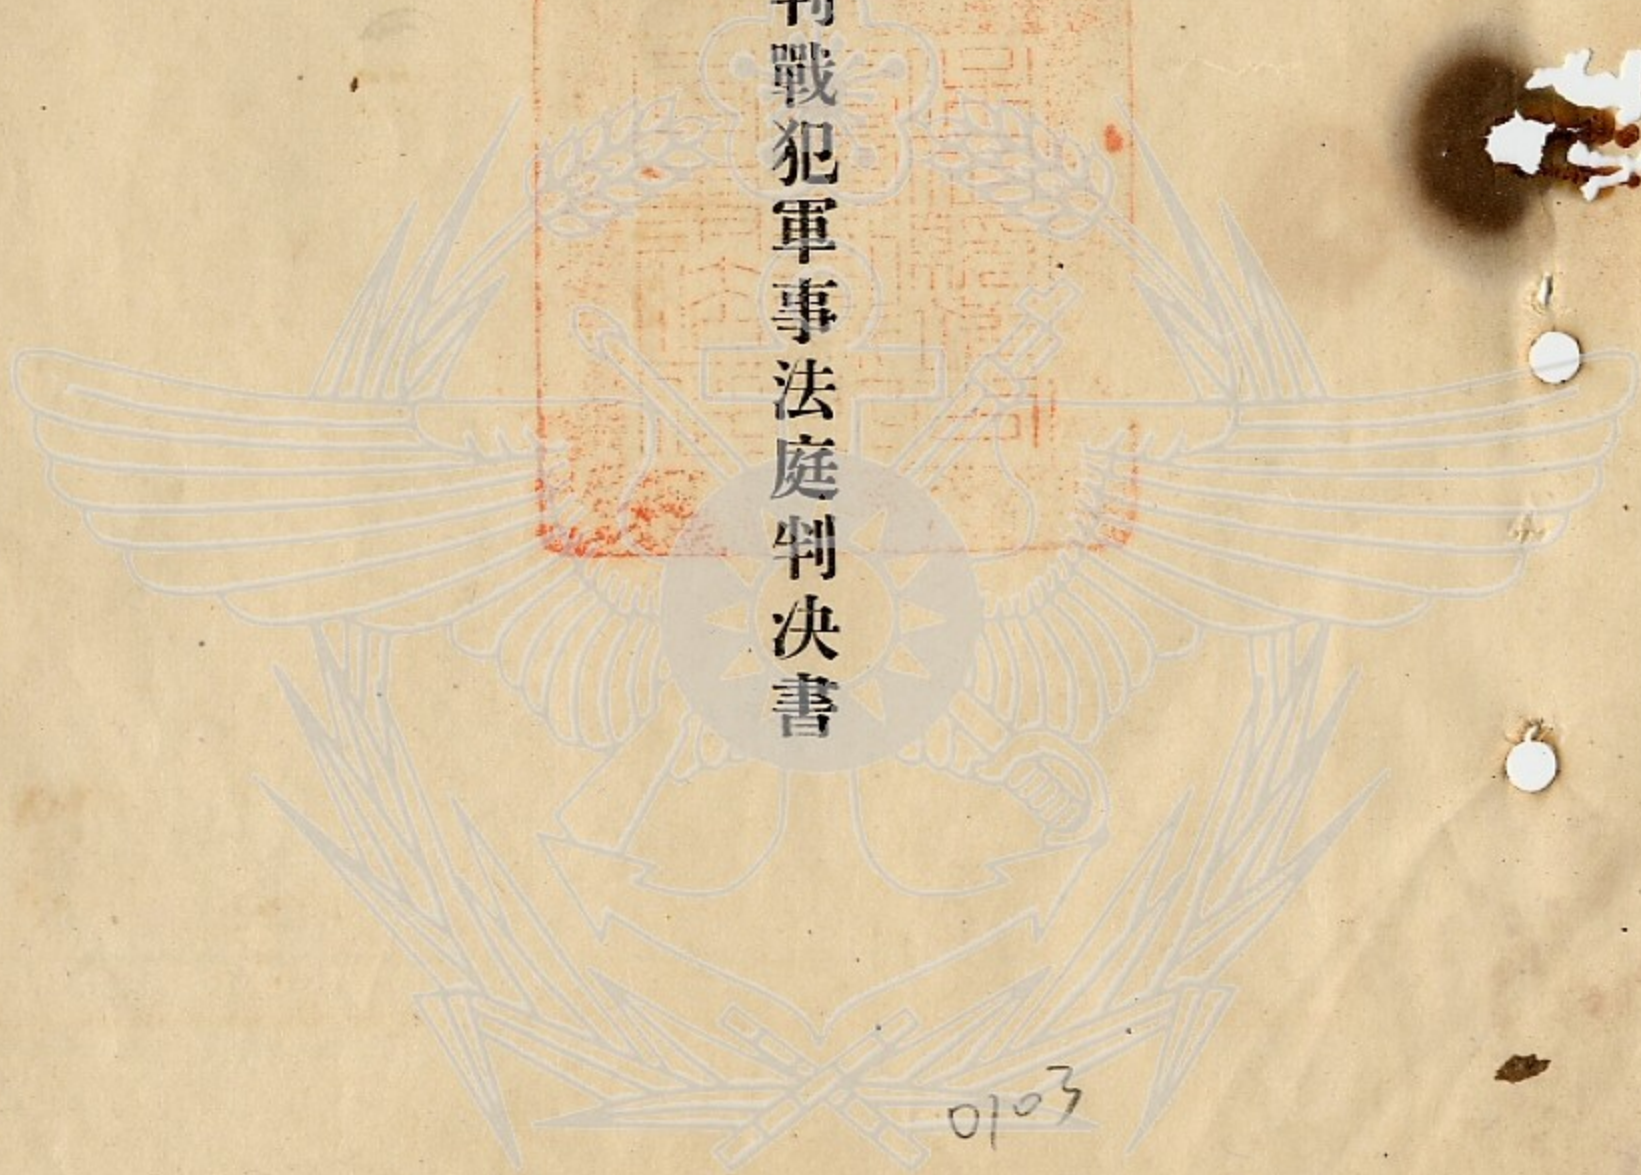 判戰犯軍事法庭判决書
0103